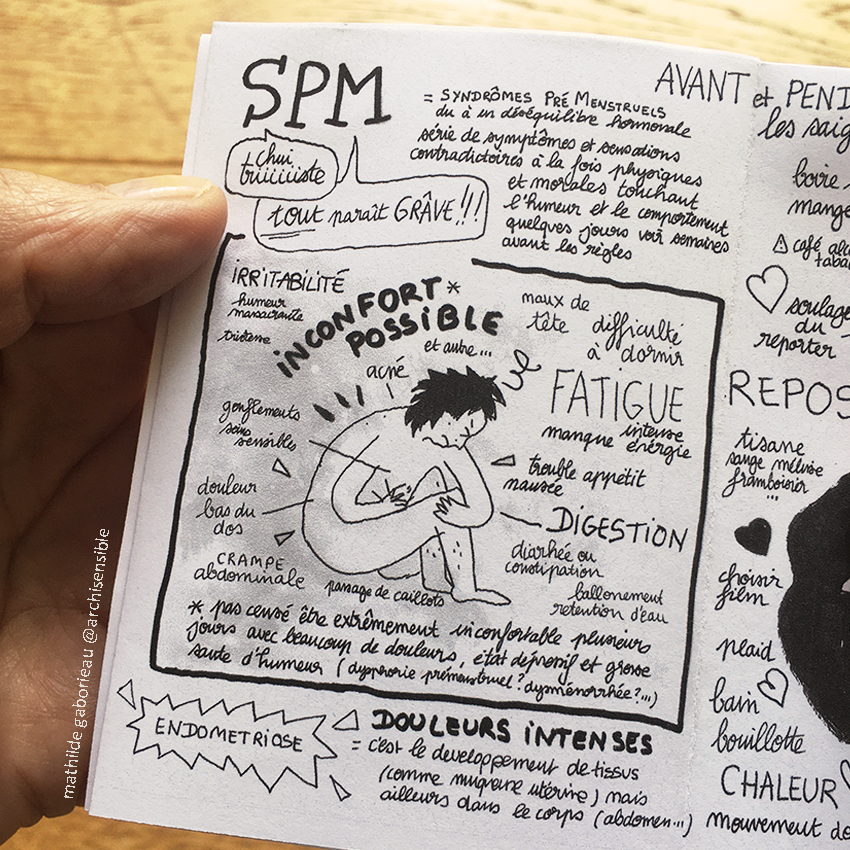 SPM
= SYNDRÔMES PRÉ MENSTRUELS
du à un déséquilibre hormonale
série de symptômes et sensations
contradictoires à la fois physiques
et morales touchant
l'humeur et le comportement
quelques jours voir semaines
avant les règles
chui
triiiiiiste
tout paraît GRÂVE !!!
IRRITABILITÉ
humeur
massacrante
tristesse
INCONFORT *
POSSIBLE
et autre...
acné
maux de
tête
difficulté
à dormir
FATIGUE
intense
manque énergie
gonflements
seins
sensibles
trouble appétit
nausée
douleur
bas du
dos
DIGESTION
diarhée ou
constipation
ballonement
retention d'eau
CRAMPE
abdominale
passage de caillots
* pas censé être extrêmement inconfortable plusieurs
jours avec beaucoup de douleurs, état dépressif et grosse
saute d'humeur (dysphorie prémenstruel? dysménorrhée?...)
ENDOMETRIOSE
DOULEURS INTENSES
= c'est le developpement de tissus
(comme muqueuse utérine) mais
ailleurs dans le corps (abdomen...)
AVANT et PEND
les saig
boire
mange
⚠ café alc
taba
soulage
du
reporter
REPOS
tisane
sauge mélisse
framboisier
...
choisir
film
plaid
bain
bouillotte
CHALEUR
mouvement do
mathilde gaborieau @archisensible